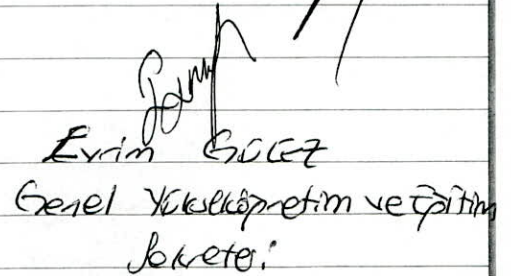 Evrim GÜCEZ
Genel Yükseköğretim ve Eğitim
Sekreteri